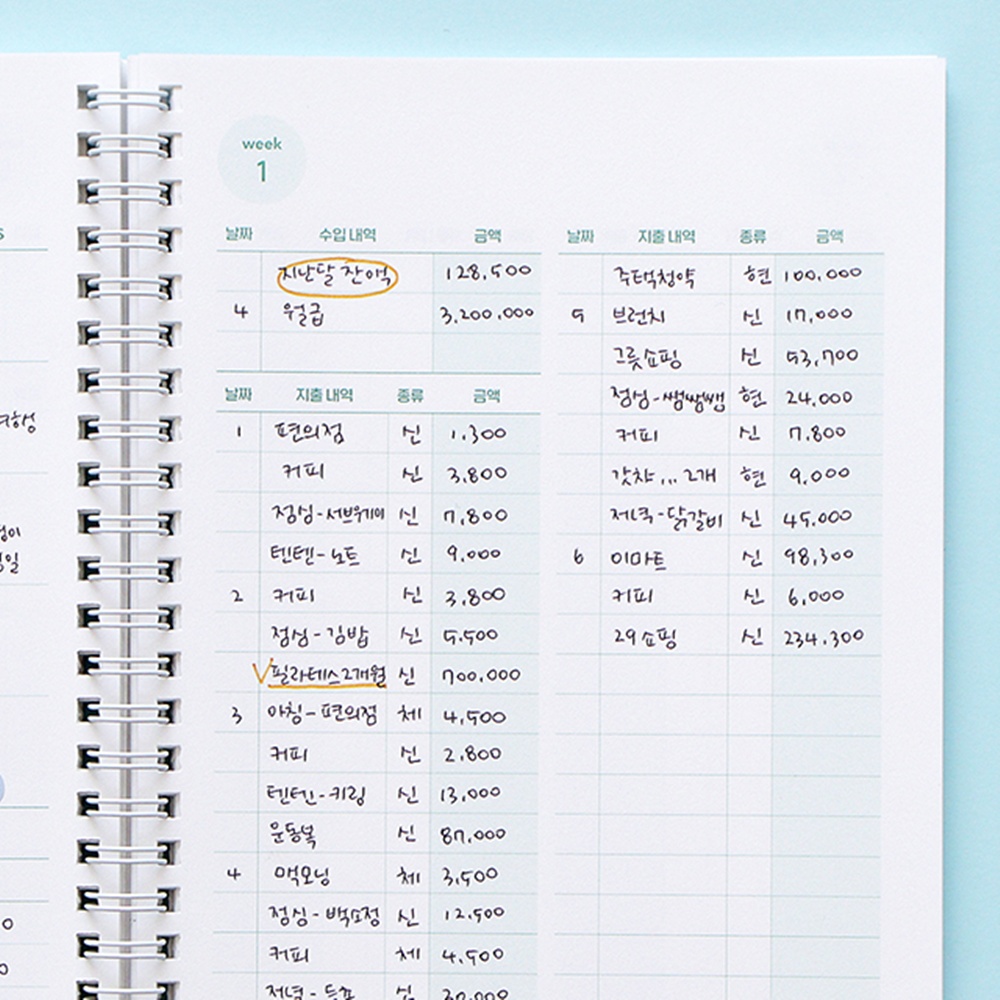 week
1
날짜 수입 내역 금액
지난달 잔액 128,500
4 월급 3,200,000
날짜 지출 내역 종류 금액
1 편의점 신 1,300
커피 신 3,800
점심-서브웨이 신 7,800
텐텐-노트 신 9,000
2 커피 신 3,800
점심-김밥 신 5,500
필라테스 2개월 신 700,000
3 아침-편의점 체 4,500
커피 신 2,800
텐텐-키링 신 13,000
운동복 신 87,000
4 맥모닝 체 3,500
점심-백소정 신 12,500
커피 체 4,500
저녁- 신 30,000
날짜 지출 내역 종류 금액
주택청약 현 100,000
5 브런치 신 17,000
그릇쇼핑 신 53,700
점심-쌤쌤쌤 현 24,000
커피 신 7,800
갓챠... 2개 현 9,000
저녁-닭갈비 신 45,000
6 이마트 신 98,300
커피 신 6,000
29쇼핑 신 234,300